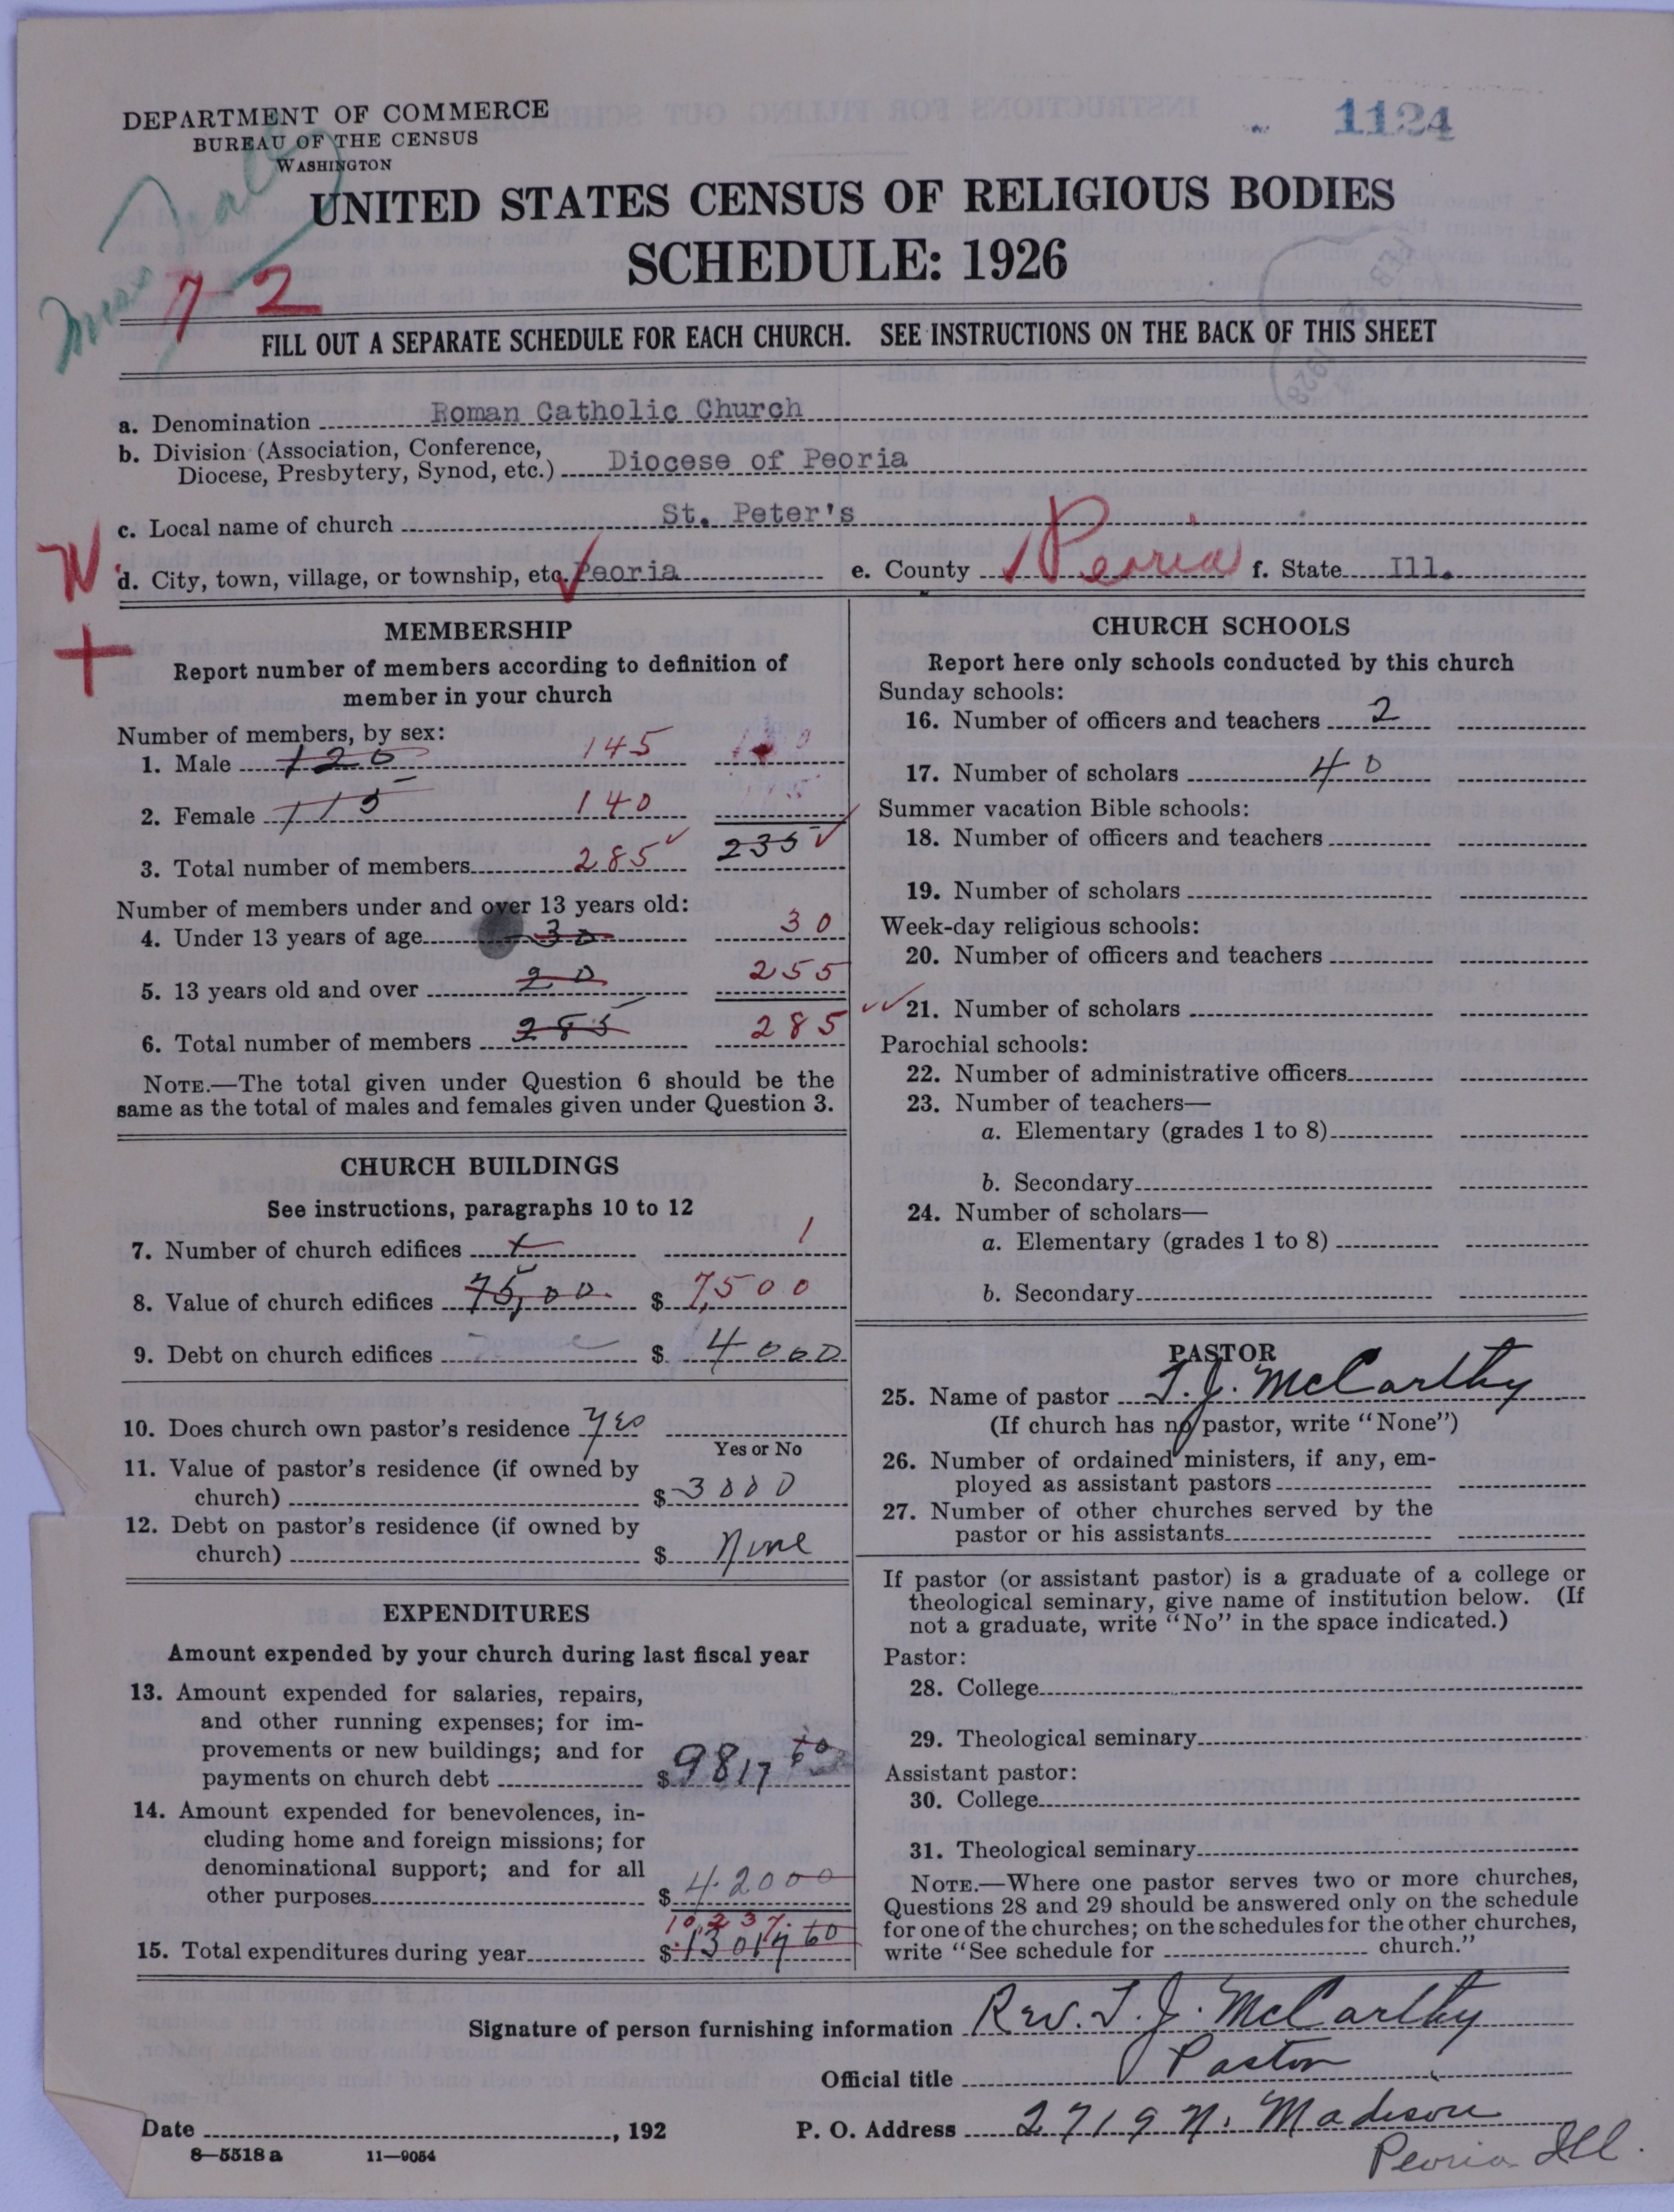 DEPARTMENT OF COMMERCE
BUREAU OF THE CENSUS
WASHINGTON
1124
UNITED STATES CENSUS OF RELIGIOUS BODIES
SCHEDULE: 1926
72
FILL OUT A SEPARATE SCHEDULE FOR EACH CHURCH. SEE INSTRUCTIONS ON THE BACK OF THIS SHEET
a. Denomination Roman Catholic Church
b. Division (Association, Conference,
Diocese, Presbytery, Synod, etc.) Diocese of Peoria
c. Local name of church St. Peter's
d. City, town, village, or township, etc. Peoria e. County Peoria f. State Ill.
MEMBERSHIP
Report number of members according to definition of
member in your church
Number of members, by sex:
1. Male 120 145
2. Female 115 140
3. Total number of members 285 235
Number of members under and over 13 years old:
4. Under 13 years of age 30 30
5. 13 years old and over 20 255
6. Total number of members 285 285
NOTE.—The total given under Question 6 should be the
same as the total of males and females given under Question 3.
CHURCH BUILDINGS
See instructions, paragraphs 10 to 12
7. Number of church edifices 1 1
8. Value of church edifices 75,00 $ 7,500
9. Debt on church edifices $ 4000
10. Does church own pastor's residence yes
Yes or No
11. Value of pastor's residence (if owned by
church) $ 3000
12. Debt on pastor's residence (if owned by
church) $ None
EXPENDITURES
Amount expended by your church during last fiscal year
13. Amount expended for salaries, repairs,
and other running expenses; for im-
provements or new buildings; and for
payments on church debt $ 9817 60
14. Amount expended for benevolences, in-
cluding home and foreign missions; for
denominational support; and for all
other purposes $ 42000
10,237.
15. Total expenditures during year $ 13017 60
CHURCH SCHOOLS
Report here only schools conducted by this church
Sunday schools:
16. Number of officers and teachers 2
17. Number of scholars 40
Summer vacation Bible schools:
18. Number of officers and teachers
19. Number of scholars
Week-day religious schools:
20. Number of officers and teachers
21. Number of scholars
Parochial schools:
22. Number of administrative officers
23. Number of teachers—
a. Elementary (grades 1 to 8)
b. Secondary
24. Number of scholars—
a. Elementary (grades 1 to 8)
b. Secondary
PASTOR
25. Name of pastor T. J. McCarthy
(If church has no pastor, write "None")
26. Number of ordained ministers, if any, em-
ployed as assistant pastors
27. Number of other churches served by the
pastor or his assistants
If pastor (or assistant pastor) is a graduate of a college or
theological seminary, give name of institution below. (If
not a graduate, write "No" in the space indicated.)
Pastor:
28. College
29. Theological seminary
Assistant pastor:
30. College
31. Theological seminary
NOTE.—Where one pastor serves two or more churches,
Questions 28 and 29 should be answered only on the schedule
for one of the churches; on the schedules for the other churches,
write "See schedule for church."
Signature of person furnishing information Rev. T. J. McCarthy
Official title Pastor
Date , 192 P. O. Address 2719 N. Madison
Peoria Ill.
8—5518 a 11—9054